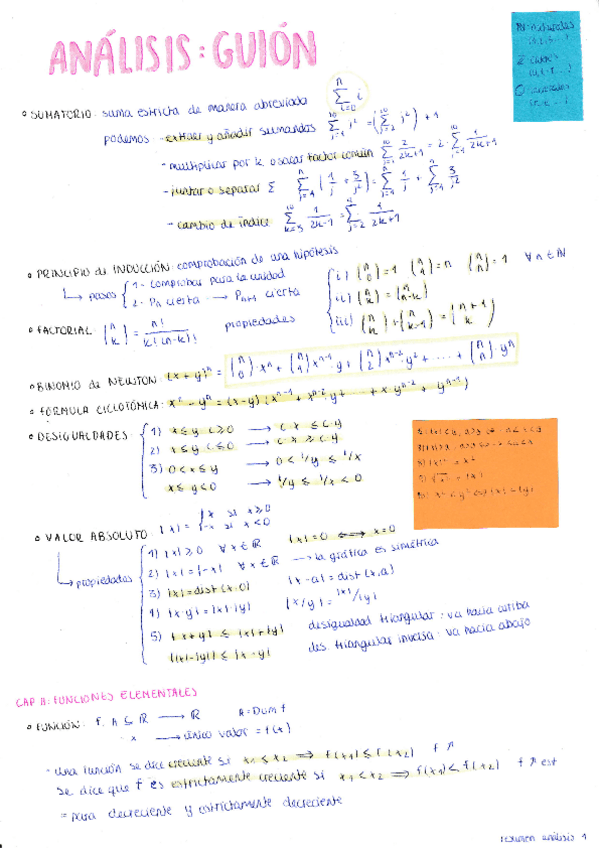 ANÁLISIS: GUIÓN
N naturales
Z
° SUMATORIO: suma escrita de manera abreviada \sum_{i=0}^{n} i
podemos - extraer y añadir sumandos \sum_{j=1}^{10} j² = (\sum_{j=2}^{10} j²) + 1
- multiplicar por k o sacar factor común \sum_{j=1}^{10} 2/(2k+1) = 2 · \sum_{j=1}^{10} 1/(2k+1)
- juntar o separar Σ \sum_{j=1}^{n} (1/j + 3/j²) = \sum_{j=1}^{n} 1/j + \sum_{j=1}^{n} 3/j²
- cambio de índice \sum_{k=3}^{10} 1/(2k-1) = \sum_{j=2} 1/(2k+1)
° PRINCIPIO de INDUCCIÓN: comprobación de una hipótesis
↳ pasos { 1- comprobar para la unidad
2- Pn cierta → Pn+1 cierta
° FACTORIAL (n k) = n!/k!(n-k)! propiedades
i) (n 0) = 1 (n 1) = n (n n) = 1 ∀ n ∈ N
ii) (n k) = (n n-k)
iii) (n k) + (n k-1) = (n+1 k)
° BINOMIO de NEWTON: (x + y)ⁿ = (n 0) · xⁿ + (n 1) xⁿ⁻¹ · y + (n 2) xⁿ⁻² y² + .... + (n n) · yⁿ
° FÓRMULA CICLOTÓMICA: xⁿ - yⁿ = (x-y) (xⁿ⁻¹ + xⁿ⁻² y + ... + x yⁿ⁻² + yⁿ⁻¹)
° DESIGUALDADES: { 1) x ≤ y c ≥ 0 → c·x ≤ c·y
2) x ≤ y c ≤ 0 → c·x ≥ c·y
3) 0 < x ≤ y → 0 < 1/y ≤ 1/x
x ≤ y < 0 → 1/y ≤ 1/x < 0
° VALOR ABSOLUTO: |x| = { x si x ≥ 0
-x si x < 0
↳ propiedades
1) |x| ≥ 0 ∀ x ∈ R |x| = 0 ⟺ x = 0
2) |x| = |-x| ∀ x ∈ R → la gráfica es simétrica
3) |x| = dist (x,0) |x-a| = dist (x,a)
4) |x·y| = |x|·|y| |x/y| = |x|/|y|
5) |x+y| ≤ |x|+|y| desigualdad triangular: va hacia arriba
||x|-|y|| ≤ |x-y| des. triangular inversa: va hacia abajo
CAP 1: FUNCIONES ELEMENTALES
° FUNCIÓN: f: A ⊆ R → R A = Dom f
x → único valor = f(x)
- Una función se dice creciente si x₁ ≤ x₂ ⟹ f(x₁) ≤ f(x₂) f ↗
Se dice que f es estrictamente creciente si x₁ < x₂ ⟹ f(x₁) < f(x₂) f ↗ est
= para decreciente y estrictamente decreciente
resumen análisis 1